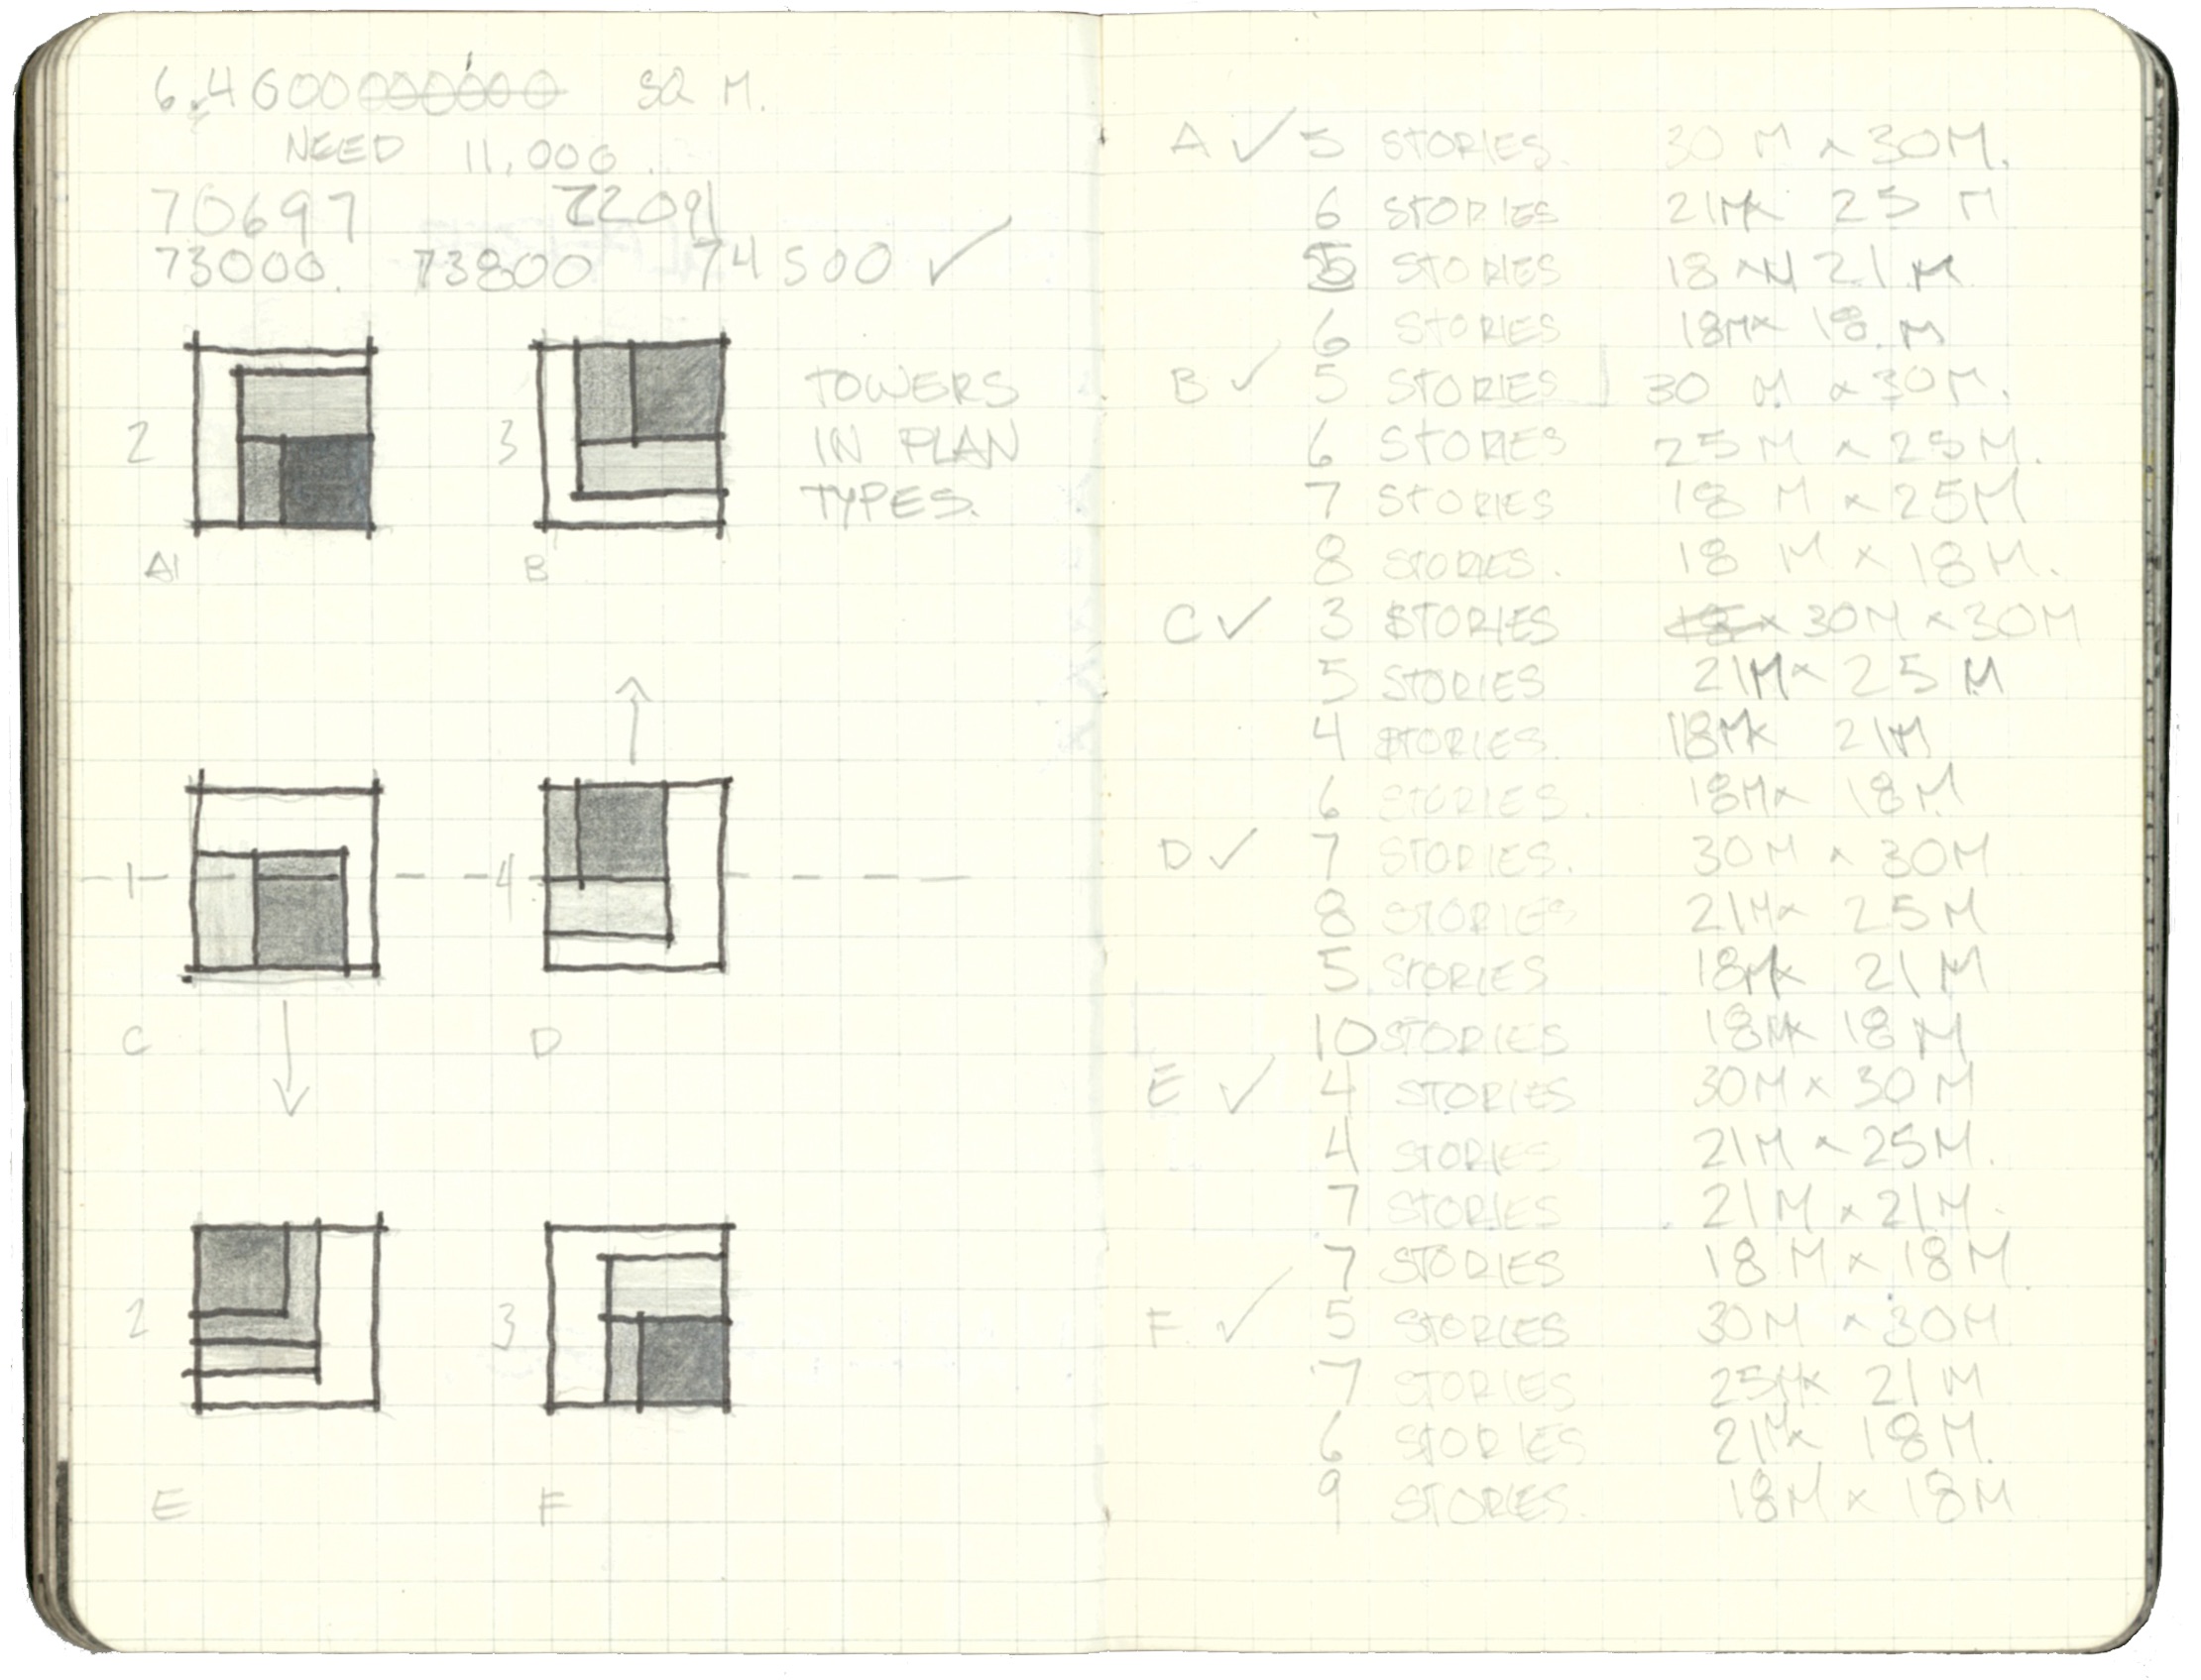 6.4600000000 SQ M.
NEED 11,000.
70697 72091
73000. 73800 74500 ✓
2 3 TOWERS
IN PLAN
TYPES.
A1 B
1 4
C D
2 3
E F
A ✓ 5 STORIES. 30 M x 30M.
6 STORIES 21M x 25 M
5 STORIES 18 M x 21 M
6 STORIES 18M x 18 M
B ✓ 5 STORIES 30 M x 30M.
6 STORIES 25 M x 25M.
7 STORIES 18 M x 25M
8 STORIES. 18 M x 18M.
C ✓ 3 STORIES 30M x 30M
5 STORIES 21M x 25 M
4 STORIES. 18M x 21M
6 STORIES. 18M x 18M
D ✓ 7 STORIES. 30M x 30M
8 STORIES 21M x 25M
5 STORIES 18M x 21M
10 STORIES 18M x 18M
E ✓ 4 STORIES 30M x 30M
4 STORIES 21M x 25M.
7 STORIES 21M x 21M.
7 STORIES 18M x 18M
F. ✓ 5 STORIES 30M x 30M
7 STORIES 25M x 21M
6 STORIES 21M x 18M.
9 STORIES. 18M x 18M